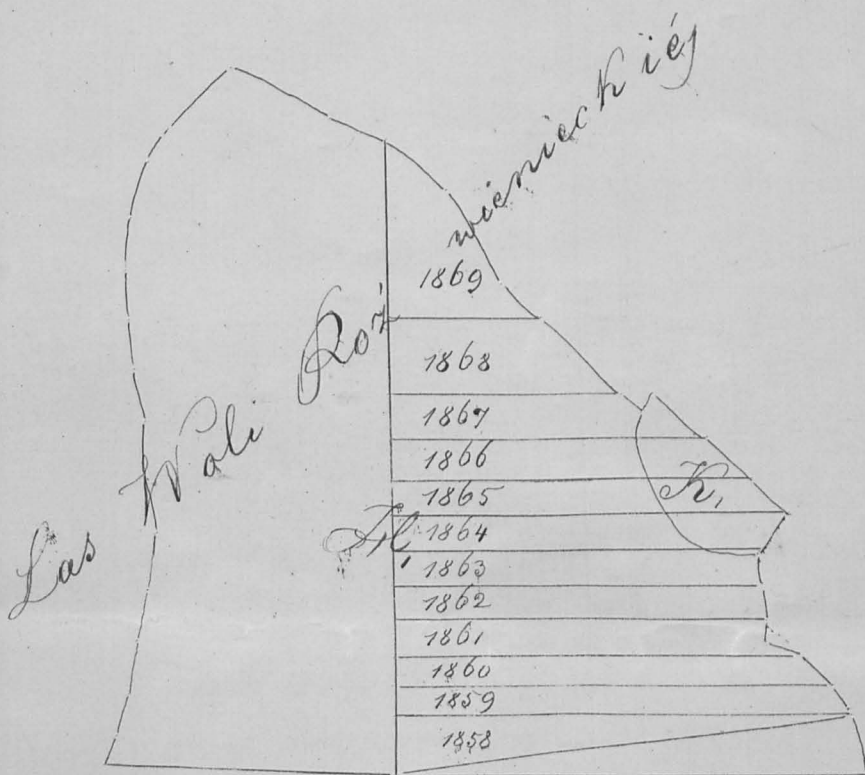 Las Woli Roż wienieckiéj
1869
1868
1867
1866
1865
K,
1864
1863
1862
1861
1860
1859
1858